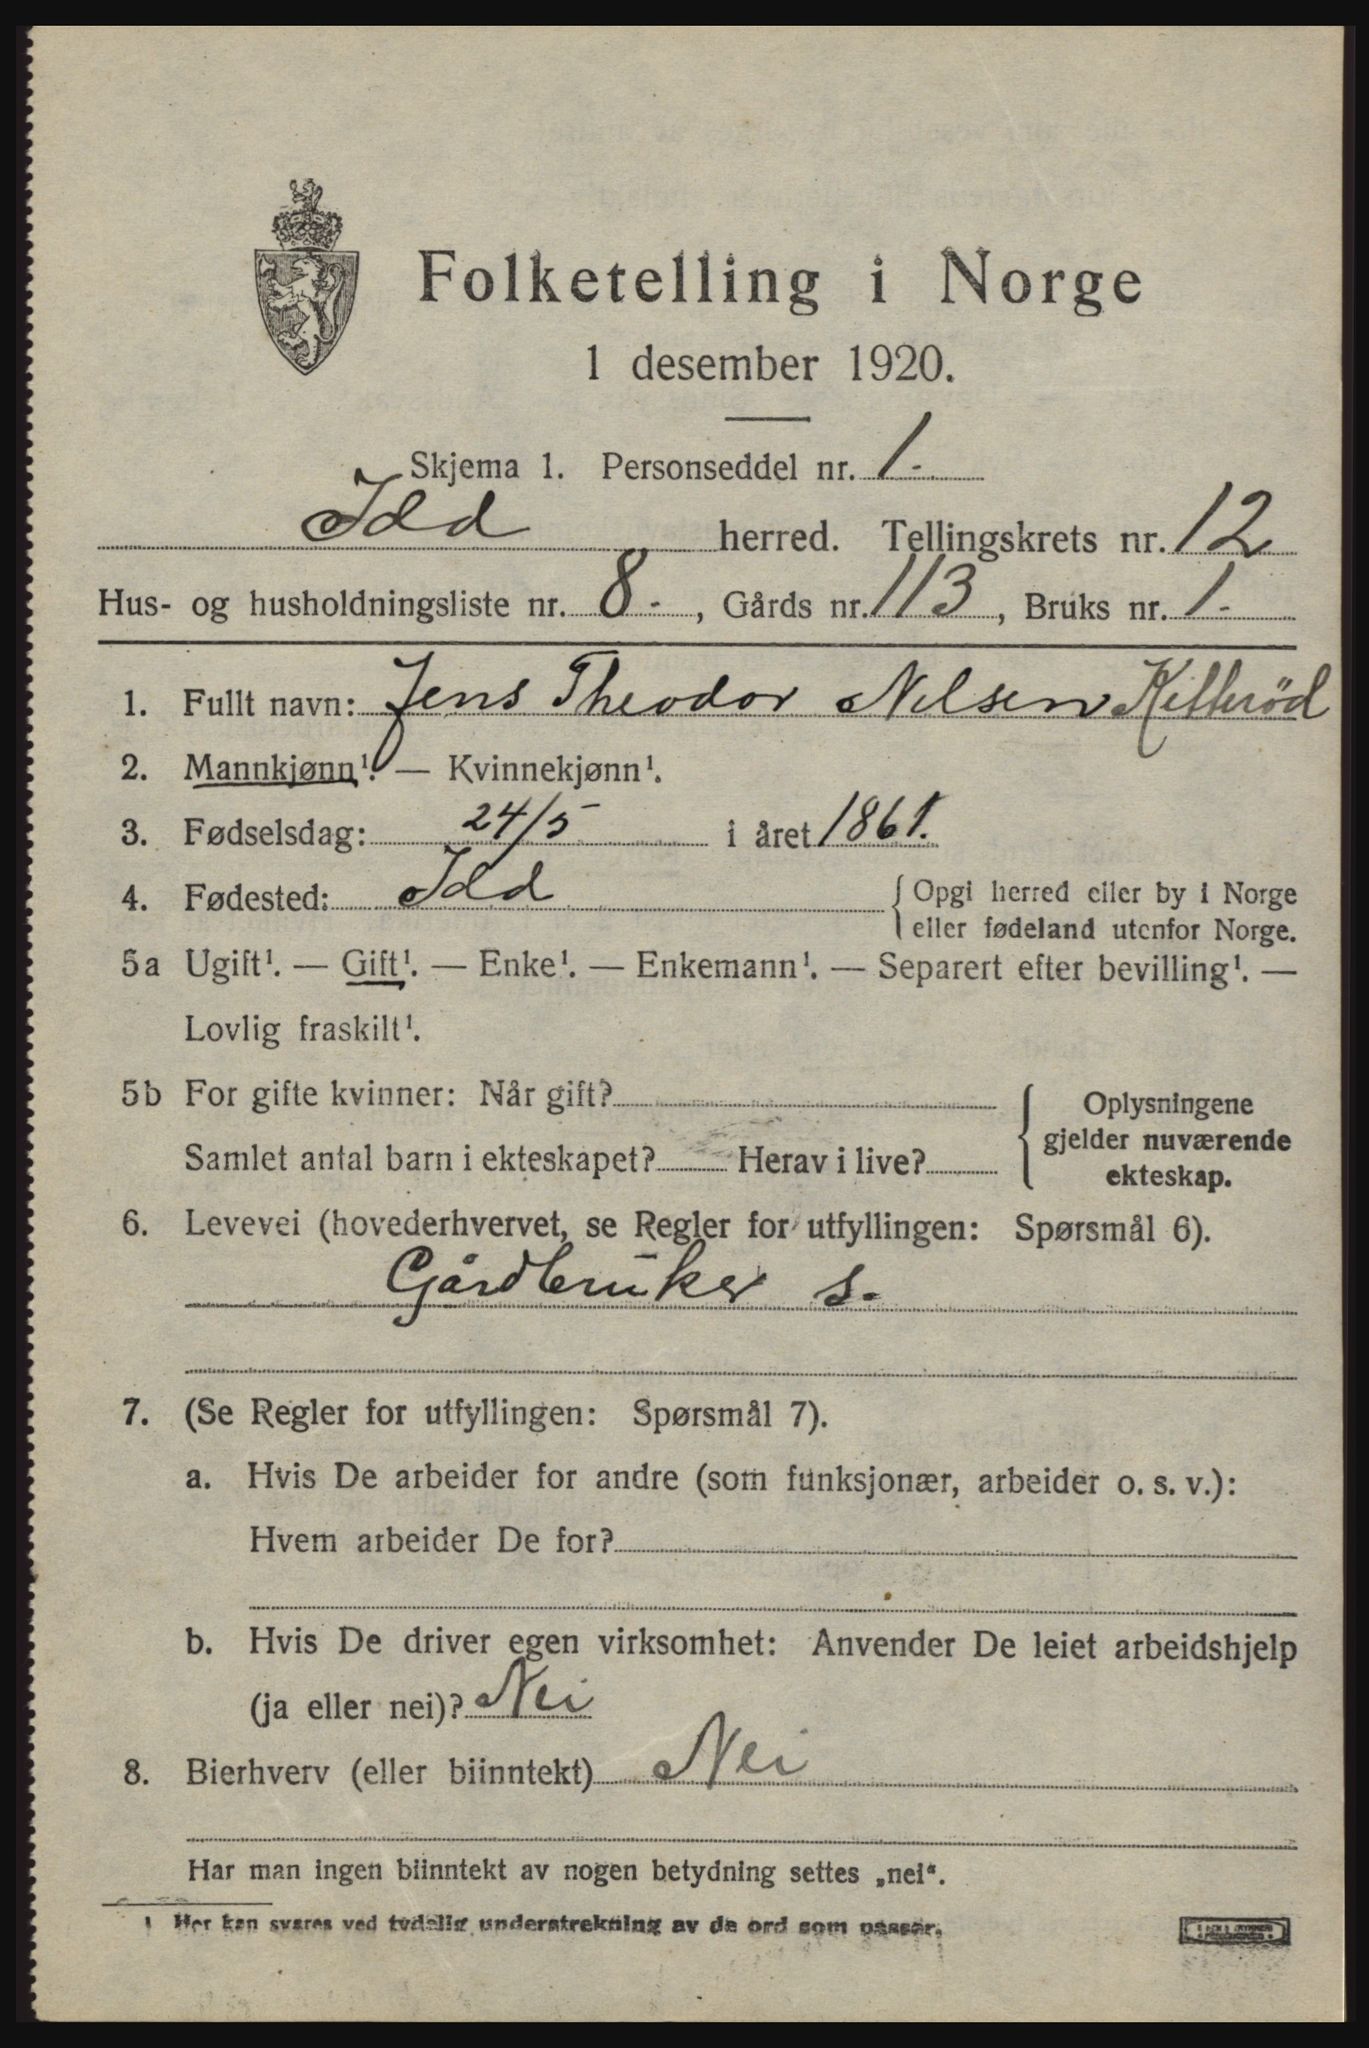 Folketelling i Norge
1 desember 1920.
Skjema 1. Personseddel nr. 1.
Idd herred. Tellingskrets nr. 12
Hus- og husholdningsliste nr. 8. , Gårds nr. 113 , Bruks nr. 1.
1. Fullt navn: Jens Theodor Nilsen
2. Mannkjønn¹. — Kvinnekjønn¹.
3. Fødselsdag: 24/5 i året 1861.
4. Fødested: Idd { Opgi herred eller by i Norge
eller fødeland utenfor Norge.
5a Ugift¹. — Gift¹. — Enke¹. — Enkemann¹. — Separert efter bevilling¹. —
Lovlig fraskilt¹.
5b For gifte kvinner: Når gift? { Oplysningene
gjelder nuværende
Samlet antal barn i ekteskapet? Herav i live?
ekteskap.
6. Levevei (hovederhvervet, se Regler for utfyllingen: Spørsmål 6).
Gårdbruker s.
7. (Se Regler for utfyllingen: Spørsmål 7).
a. Hvis De arbeider for andre (som funksjonær, arbeider o. s. v.):
Hvem arbeider De for?
b. Hvis De driver egen virksomhet: Anvender De leiet arbeidshjelp
(ja eller nei)? Nei
8. Bierhverv (eller biinntekt) Nei
Har man ingen biinntekt av nogen betydning settes „nei“.
1 Her kan svares ved tydelig understrekning av de ord som passer.